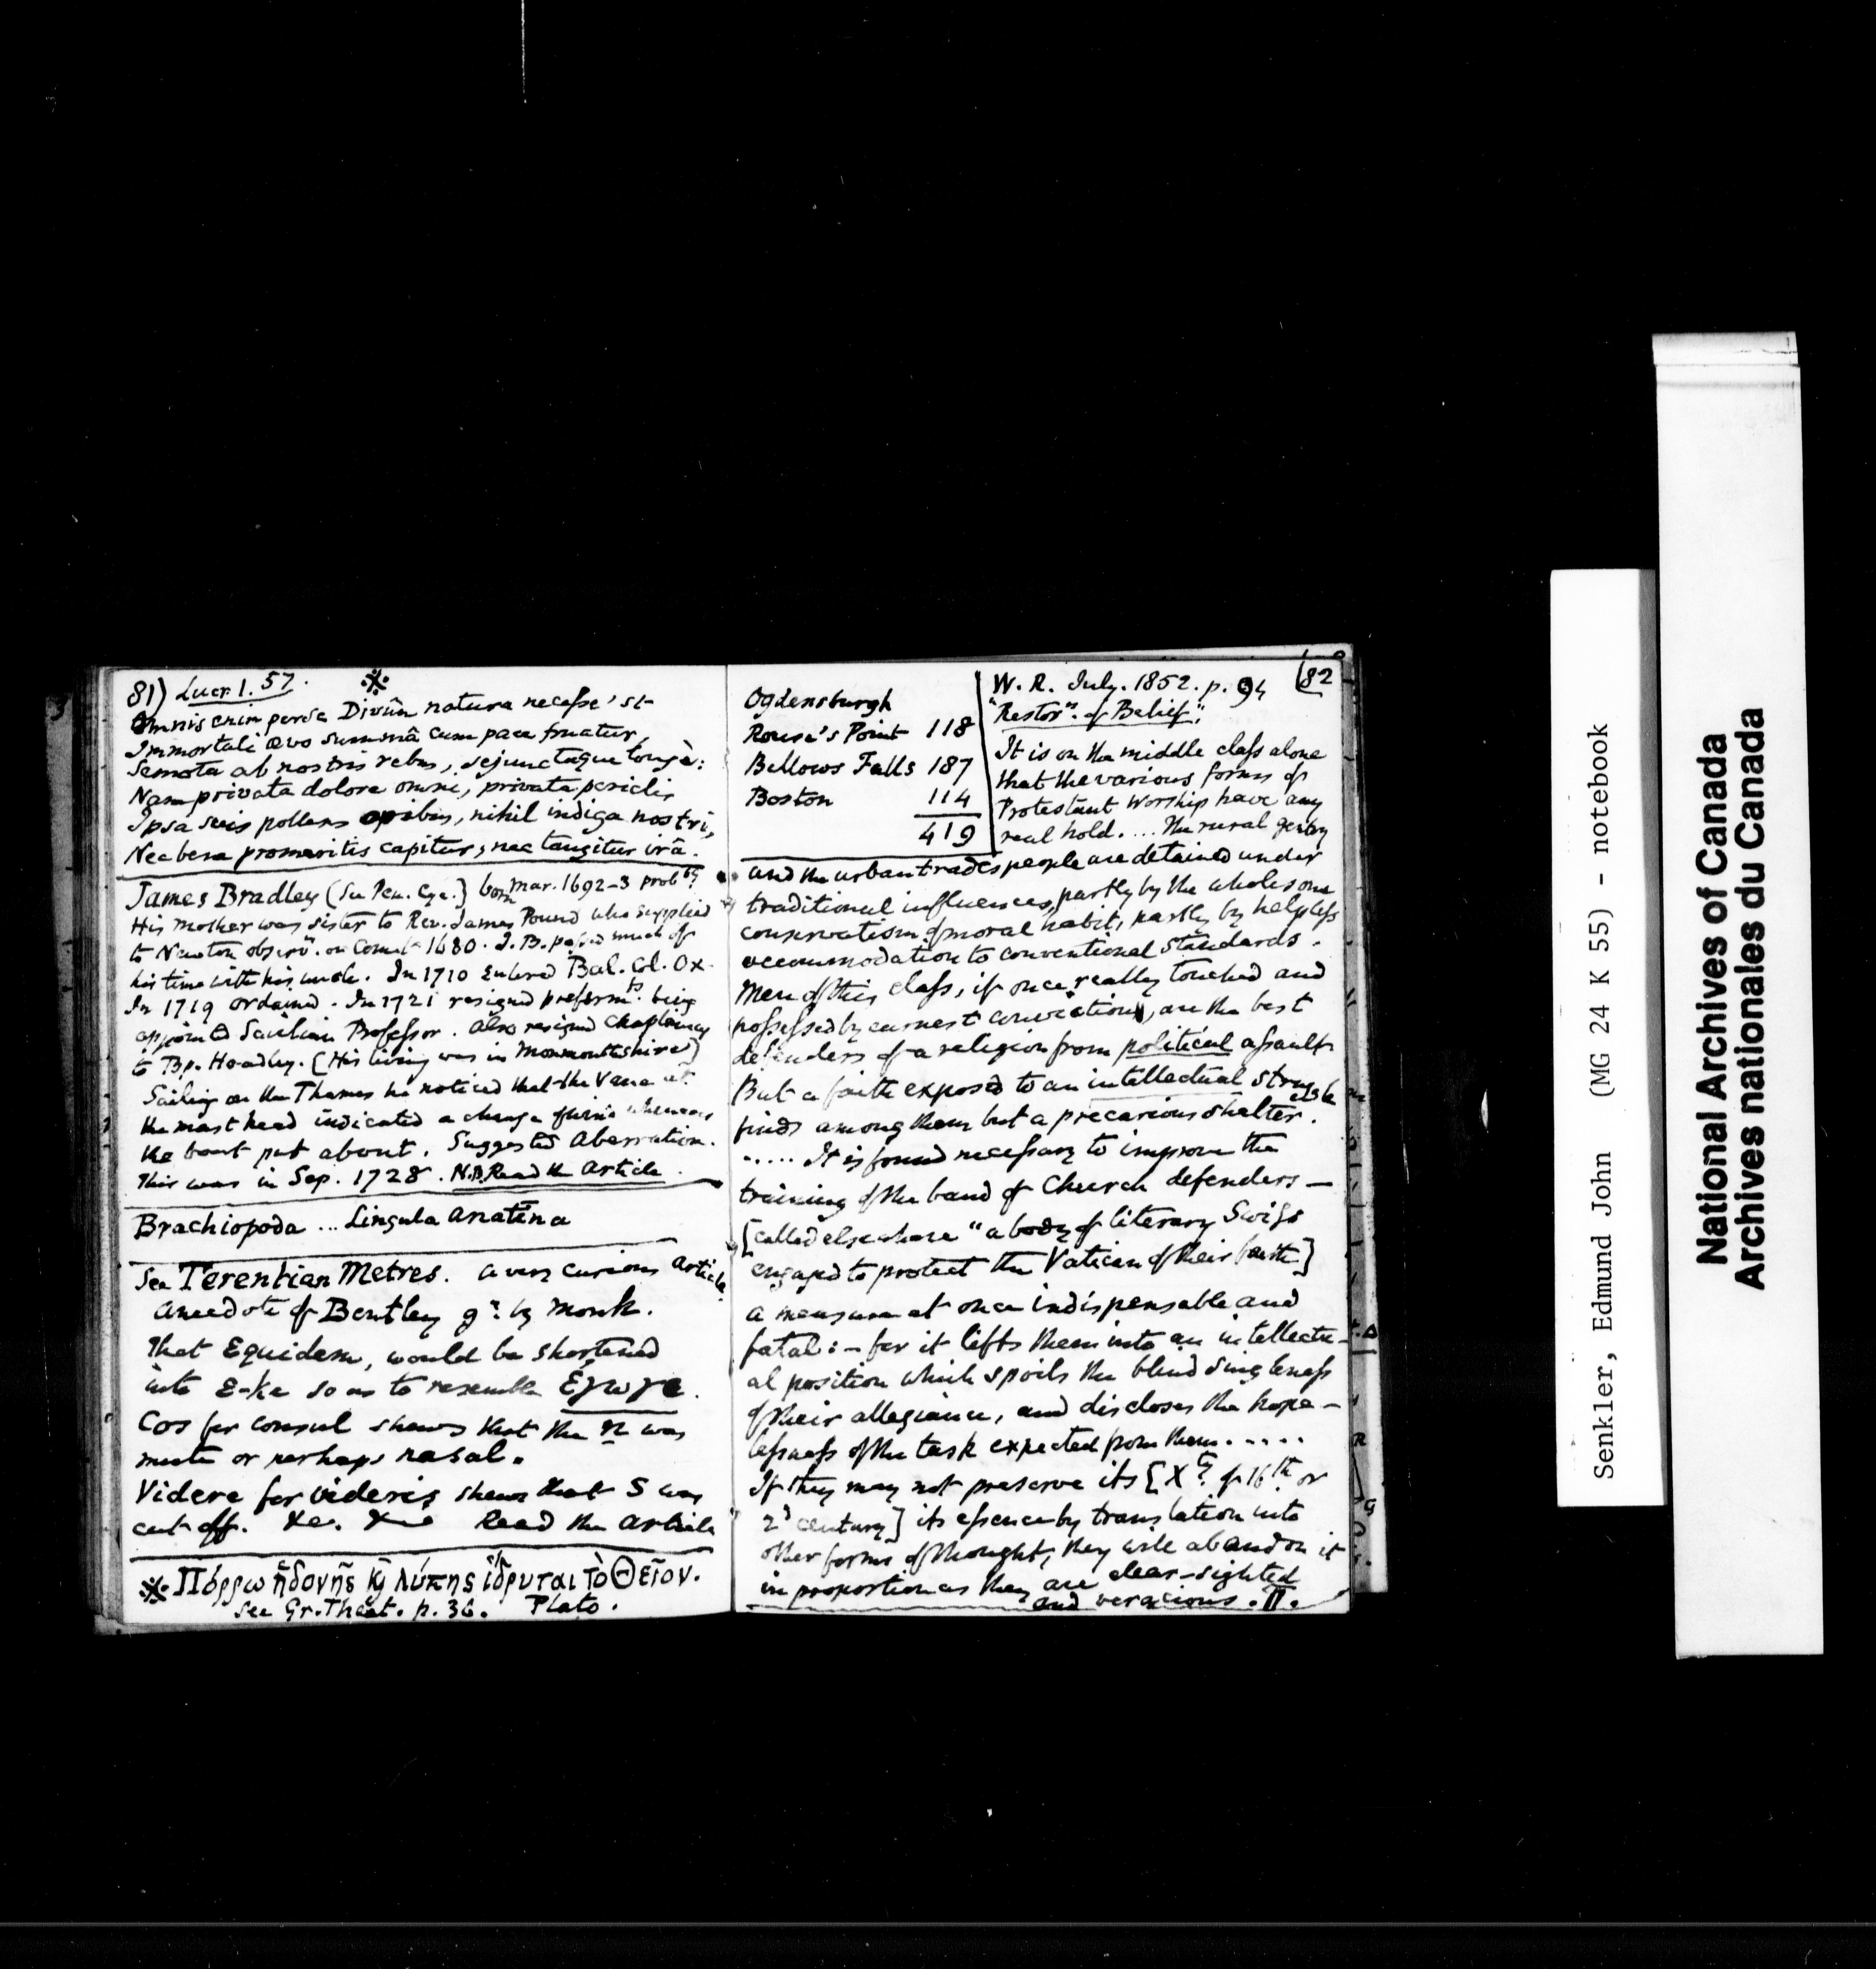 81) Lucr. 1. 57. ※
Omnis enim per se Divûm natura necesse 'st
Immortali ævo summâ cum pace fruatur,
Semota ab nostris rebus, sejunctaque longè:
Nam privata dolore omni, privata periclis
Ipsa suis pollens opibus, nihil indiga nostri,
Nec bene promeritis capitur, nec tangitur irâ.
James Bradley (See Pen. Cyc.) born Mar. 1692-3 probly
His mother was sister to Rev. James Pound who supplied
to Newton observns. on Comet 1680. J. B. passed much of
his time with his uncle. In 1710 entered Bal. Col. Ox.
In 1719 ordained. In 1721 resigned prefermts. being
appointed Savilian Professor. Also resigned chaplaincy
to Bp. Hoadley. (His living was in Monmouthshire)
Sailing on the Thames he noticed that the Vane at
the mast head indicated a change of wind whenever
the boat put about. Suggested Aberration.
This was in Sep. 1728. N.B. Read the Article.
Brachiopoda ... Lingula anatina
See Terentian Metres. a very curious article
anecdote of Bentley gn. by Monk.
That Equidem, would be shortened
into E-ke so as to resemble Ἔγωγε.
Cos for consul shews that the n was
mute or perhaps nasal.
Videre for videris shews that S was
cut off. &c. &c Read the article
※ Πόρρω ἡδονῆς ϗ λύπης ἵδρυται τὸ Θεῖον.
See Gr. Theat. p. 36. Plato.
(82
Ogdensburgh
Rouse's Point 118
Bellows Falls 187
Boston 114
419
W. R. July. 1852. p. 94
"Restorn. of Belief."
It is on the middle class alone
that the various forms of
Protestant Worship have any
real hold. ... The rural gentry
and the urban tradespeople are detained under
traditional influences, partly by the wholesome
conservatism of moral habit, partly by helpless
accommodation to conventional standards.
Men of this class, if once really touched and
possessed by earnest conviction, are the best
defenders of a religion from political assault
But a faith exposed to an intellectual struggle
finds among them but a precarious shelter.
..... It is found necessary to improve the
training of the band of Church defenders —
[called elsewhere "a body of literary Swiss
engaged to protect the Vatican of their faith]
a measure at once indispensable and
fatal: — for it lifts them into an intellectu-
al position which spoils the blind singleness
of their allegiance, and discloses the hope-
lessness of the task expected from them.....
If they may not preserve its [Xty. of 16th or
2d century] its essence by translation into
other forms of thought, they will abandon it
in proportion as they are clear-sighted
and veracious. Π.
Senkler, Edmund John (MG 24 K 55) - notebook
National Archives of Canada
Archives nationales du Canada